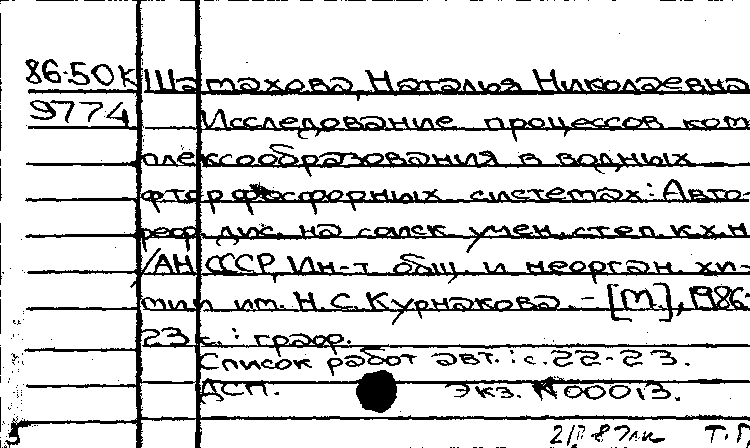 86-50К Шатахова, Наталья Николаевна
9774 Исследование процессов ком
плексообразования в водных
фторфосфорных системах: Авто-
реф. дис. на соиск учен. степ. к.х.н
/АН СССР, Ин-т общ. и неорган. хи-
мии им. Н.С.Курнакова. - [М.], 1986-
23 с. : граф.
Список работ авт.: с. 22-23.
ДСП. Экз. N 00013.